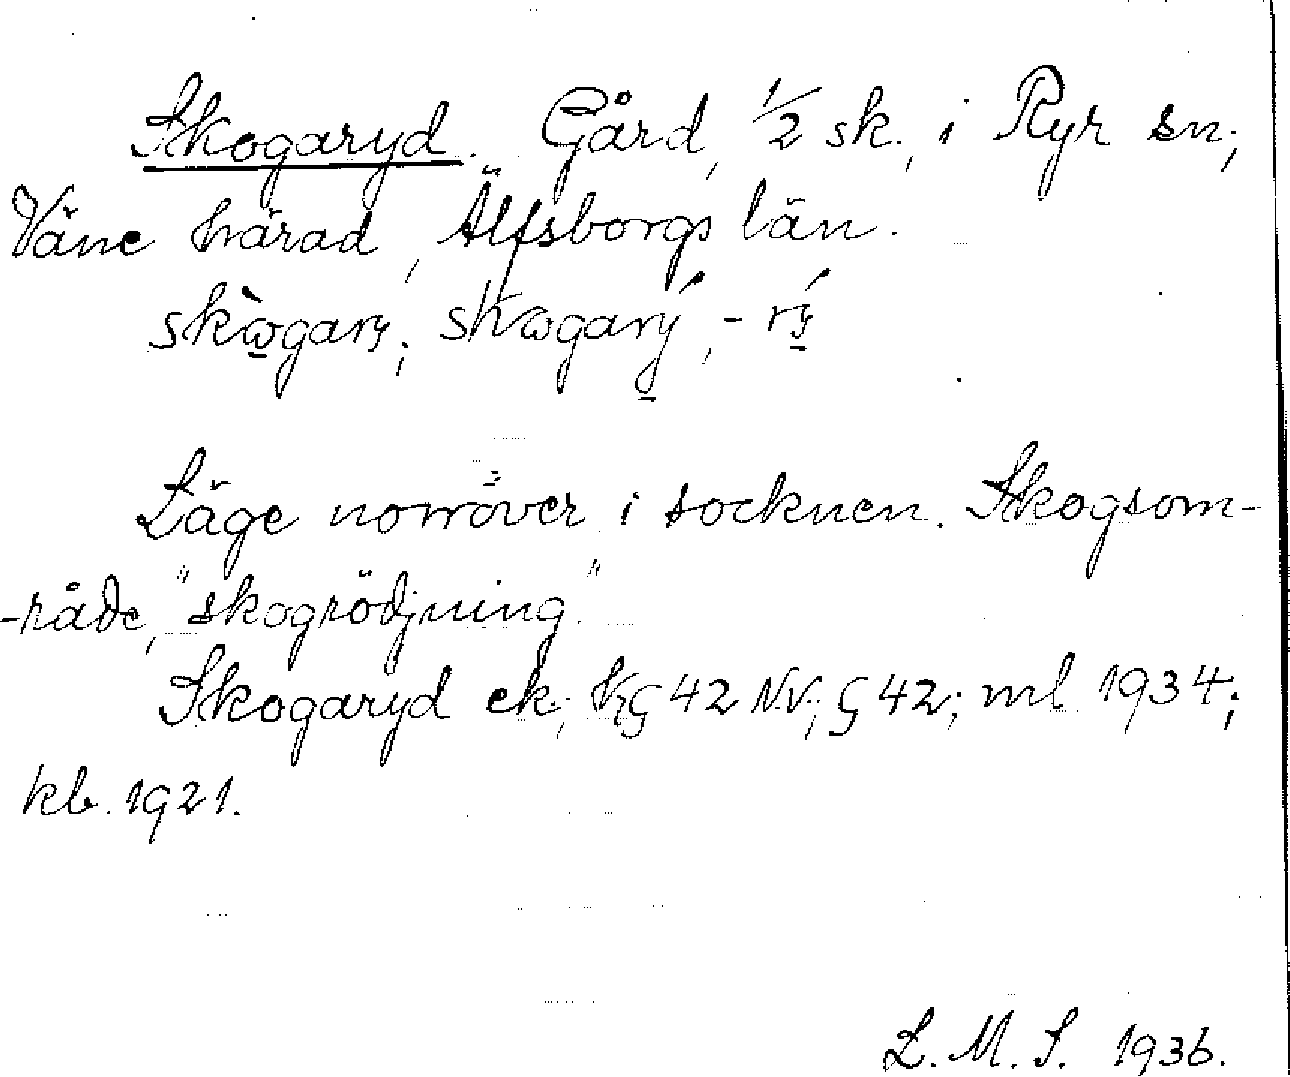 Skogaryd. Gård, 1/2 sk., i Ryr sn;
Väne härad, Älfsborgs län.
skògary; skogarý, -rý
Läge norröver i socknen. Skogsom-
-råde, "skogrödjning."
Skogaryd ek; KG 42 NV; G 42; ml 1934;
kb. 1921.
L. M. S. 1936.